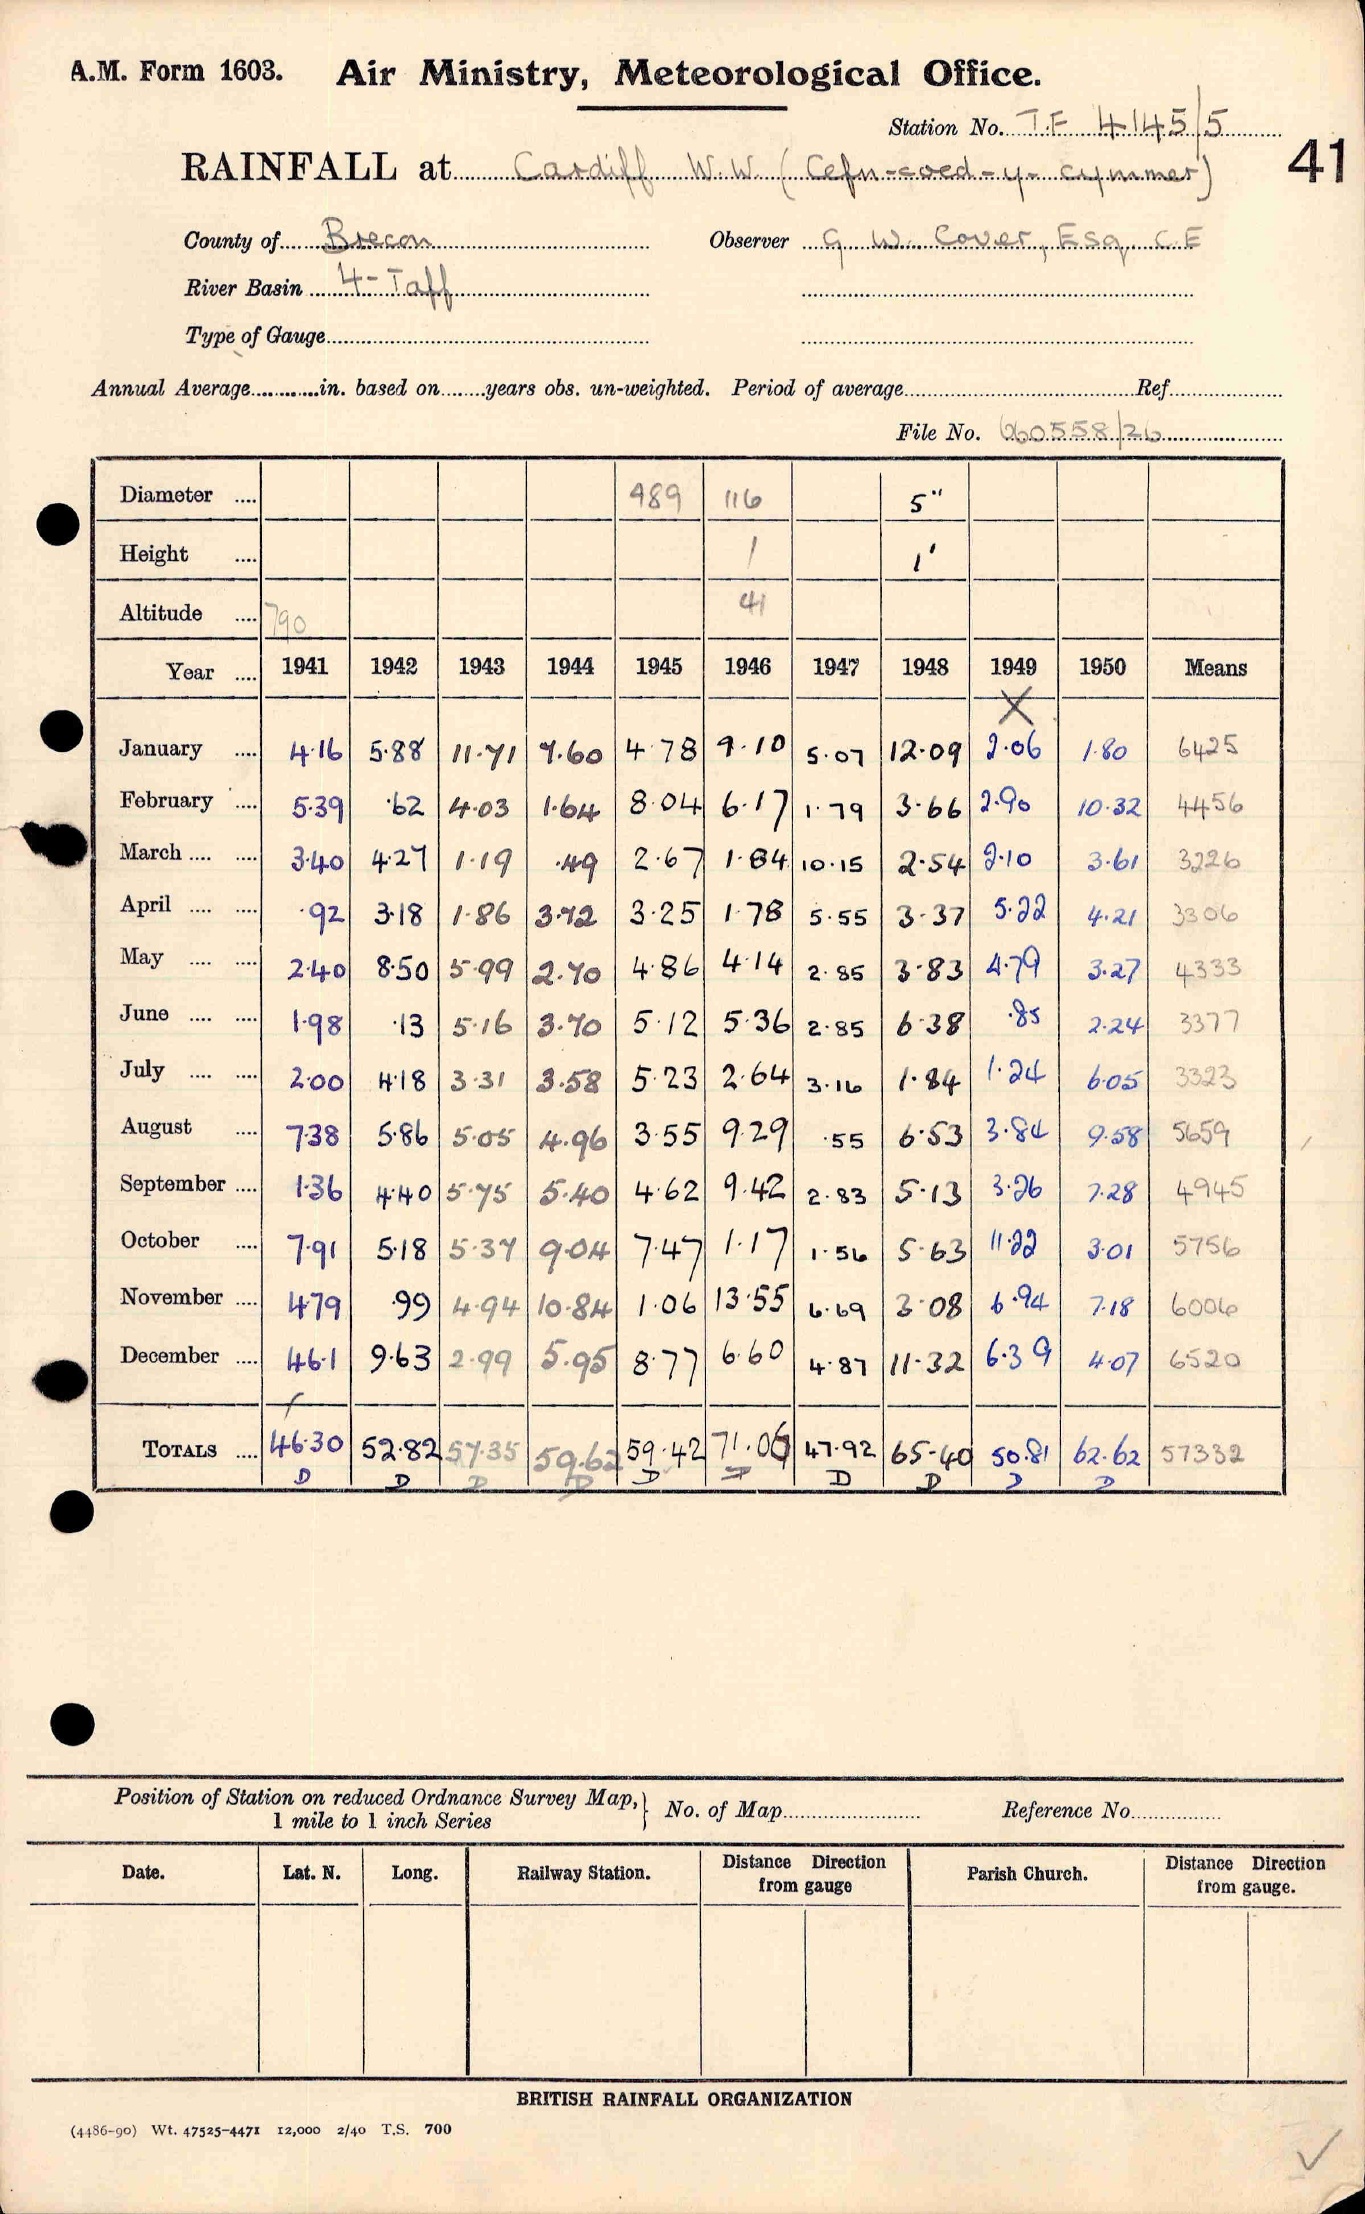 A.M. Form 1603. Air Ministry, Meteorological Office.
Station No. T.F 4145/5
41
RAINFALL at Cardiff W.W. (Cefn-coed-y-cymmer)
County of Brecon Observer G W. Cover, Esq C.E
River Basin 4-Taff
Type of Gauge
Annual Average............in. based on.......years obs. un-weighted. Period of average Ref
File No. 660558/26
Diameter .... 989 116 5"
Height .... 1 1'
Altitude .... 790 41
Year .... 1941 1942 1943 1944 1945 1946 1947 1948 1949 1950 Means
X
January .... 4.16 5.88 11.71 7.60 4.78 9.10 5.07 12.09 2.06 1.80 6425
February .... 5.39 .62 4.03 1.64 8.04 6.17 1.79 3.66 2.90 10.32 4456
March .... .... 3.40 4.27 1.19 .49 2.67 1.84 10.15 2.54 2.10 3.61 3226
April .... .... .92 3.18 1.86 3.72 3.25 1.78 5.55 3.37 5.22 4.21 3306
May .... .... 2.40 8.50 5.99 2.70 4.86 4.14 2.85 3.83 4.79 3.27 4333
June .... .... 1.98 .13 5.16 3.70 5.12 5.36 2.85 6.38 .85 2.24 3377
July .... .... 2.00 4.18 3.31 3.58 5.23 2.64 3.16 1.84 1.24 6.05 3323
August .... 7.38 5.86 5.05 4.96 3.55 9.29 .55 6.53 3.84 9.58 5659
September .... 1.36 4.40 5.75 5.40 4.62 9.42 2.83 5.13 3.26 7.28 4945
October .... 7.91 5.18 5.37 9.04 7.47 1.17 1.56 5.63 11.22 3.01 5756
November .... 4.79 .99 4.94 10.84 1.06 13.55 6.69 3.08 6.94 7.18 6006
December .... 4.61 9.63 2.99 5.95 8.77 6.60 4.87 11.32 6.39 4.07 6520
TOTALS .... 46.30 52.82 57.35 59.62 59.42 71.06 47.92 65.40 50.81 62.62 57332
D D D D D D D D D D
Position of Station on reduced Ordnance Survey Map, } No. of Map Reference No.
1 mile to 1 inch Series
Date. Lat. N. Long. Railway Station. Distance from gauge Direction Parish Church. Distance from gauge. Direction
BRITISH RAINFALL ORGANIZATION
(4486-90) Wt. 47525-4471 12,000 2/40 T.S. 700